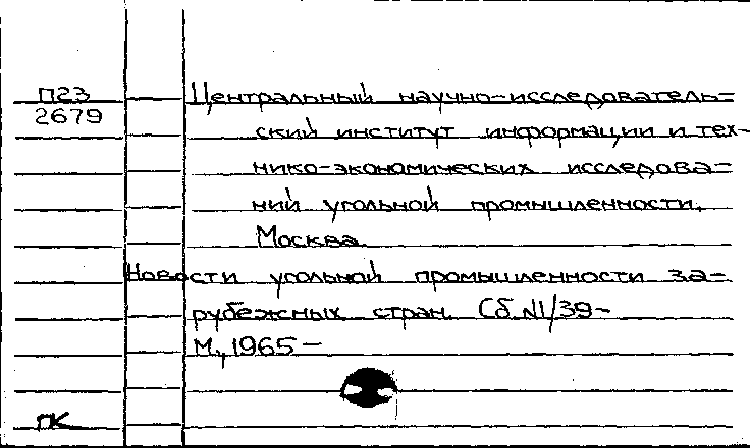 П23 Центральный научно-исследователь=
2679 ский институт информации и тех-
нико-экономических исследова=
ний угольной промышленности.
Москва.
Новости угольной промышленности за=
рубежных стран. Сб. №1/39-
М., 1965-
ПК